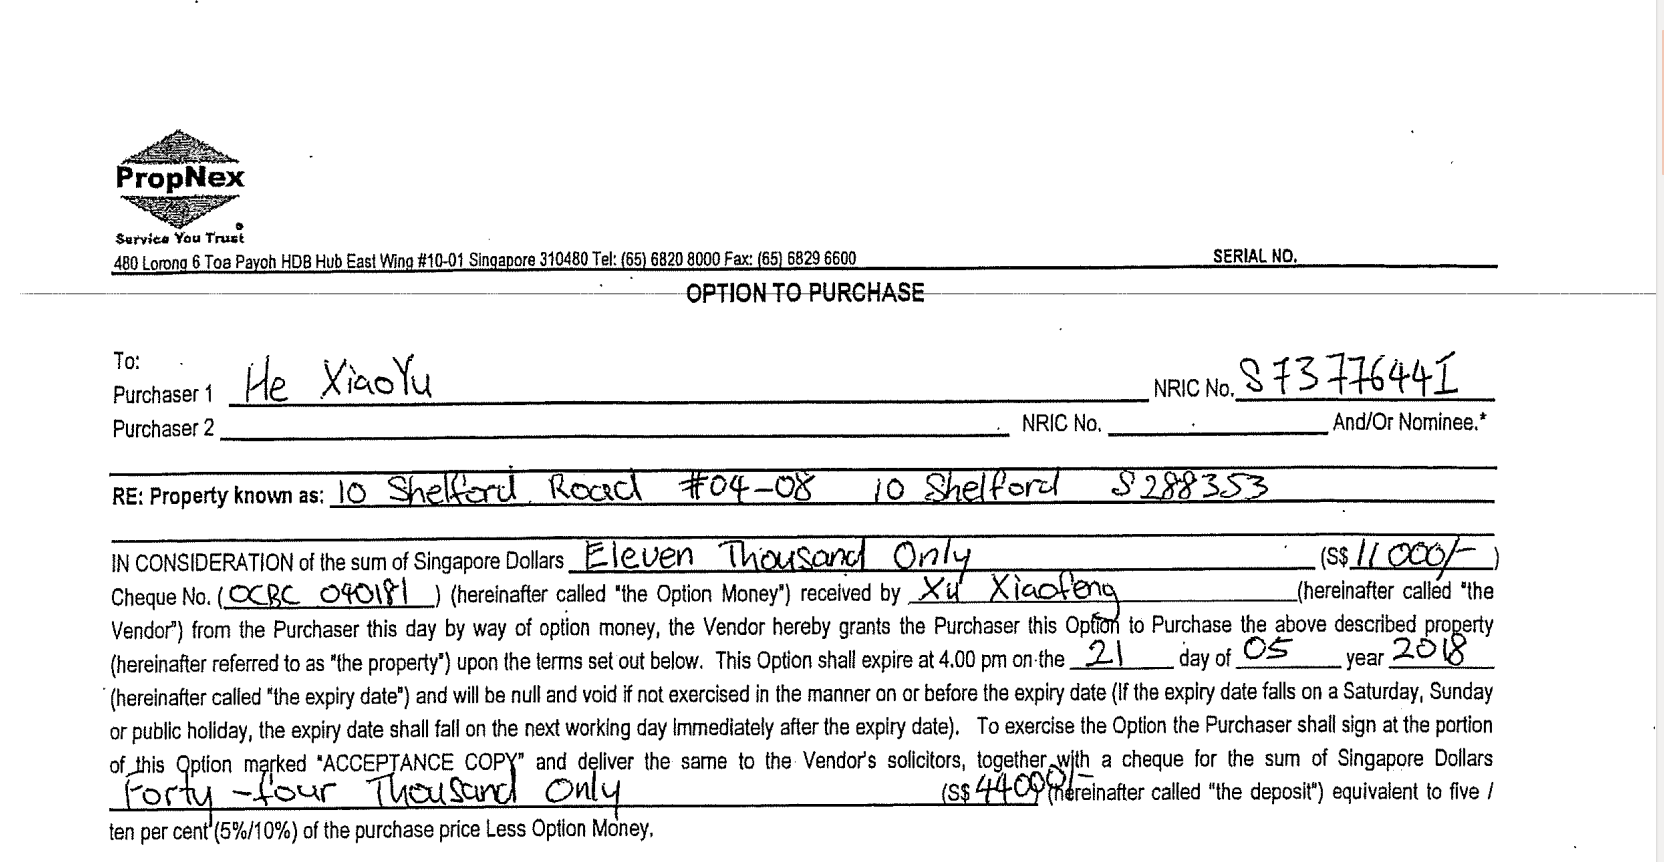 PropNex
Service You Trust
480 Lorong 6 Toa Payoh HDB Hub East Wing #10-01 Singapore 310480 Tel: (65) 6820 8000 Fax: (65) 6829 6600 SERIAL NO.
OPTION TO PURCHASE
To:
Purchaser 1 He XiaoYu NRIC No. S7377644I
Purchaser 2 NRIC No. And/Or Nominee.*
RE: Property known as: 10 Shelford Road #04-08 10 Shelford S288353
IN CONSIDERATION of the sum of Singapore Dollars Eleven Thousand Only (S$ 11000/- )
Cheque No. ( OCBC 090181 ) (hereinafter called "the Option Money") received by Xu Xiaofeng (hereinafter called "the
Vendor") from the Purchaser this day by way of option money, the Vendor hereby grants the Purchaser this Option to Purchase the above described property
(hereinafter referred to as "the property") upon the terms set out below. This Option shall expire at 4.00 pm on the 21 day of 05 year 2018
(hereinafter called "the expiry date") and will be null and void if not exercised in the manner on or before the expiry date (If the expiry date falls on a Saturday, Sunday
or public holiday, the expiry date shall fall on the next working day immediately after the expiry date). To exercise the Option the Purchaser shall sign at the portion
of this Option marked "ACCEPTANCE COPY" and deliver the same to the Vendor's solicitors, together with a cheque for the sum of Singapore Dollars
Forty-four Thousand Only (S$ 44000/- (hereinafter called "the deposit") equivalent to five /
ten per cent (5%/10%) of the purchase price Less Option Money.